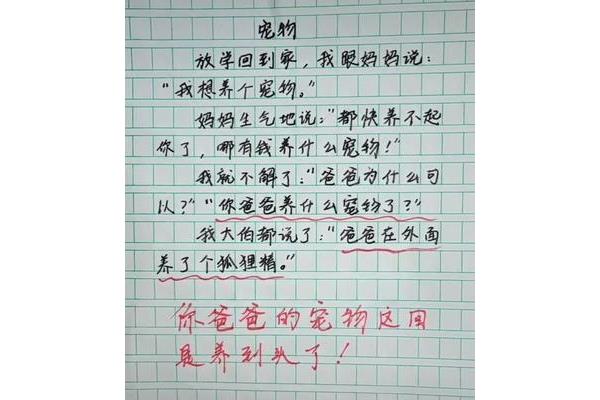 宠物
放学回到家，我跟妈妈说：
“我想养个宠物。”
妈妈生气地说：“都快养不起
你了，哪有钱养什么宠物！”
我就不解了：“爸爸为什么可
以？”“你爸爸养什么宠物了？”
我大伯都说了：“爸爸在外面
养了个狐狸精。”
你爸爸的宠物这回
是养到头了！